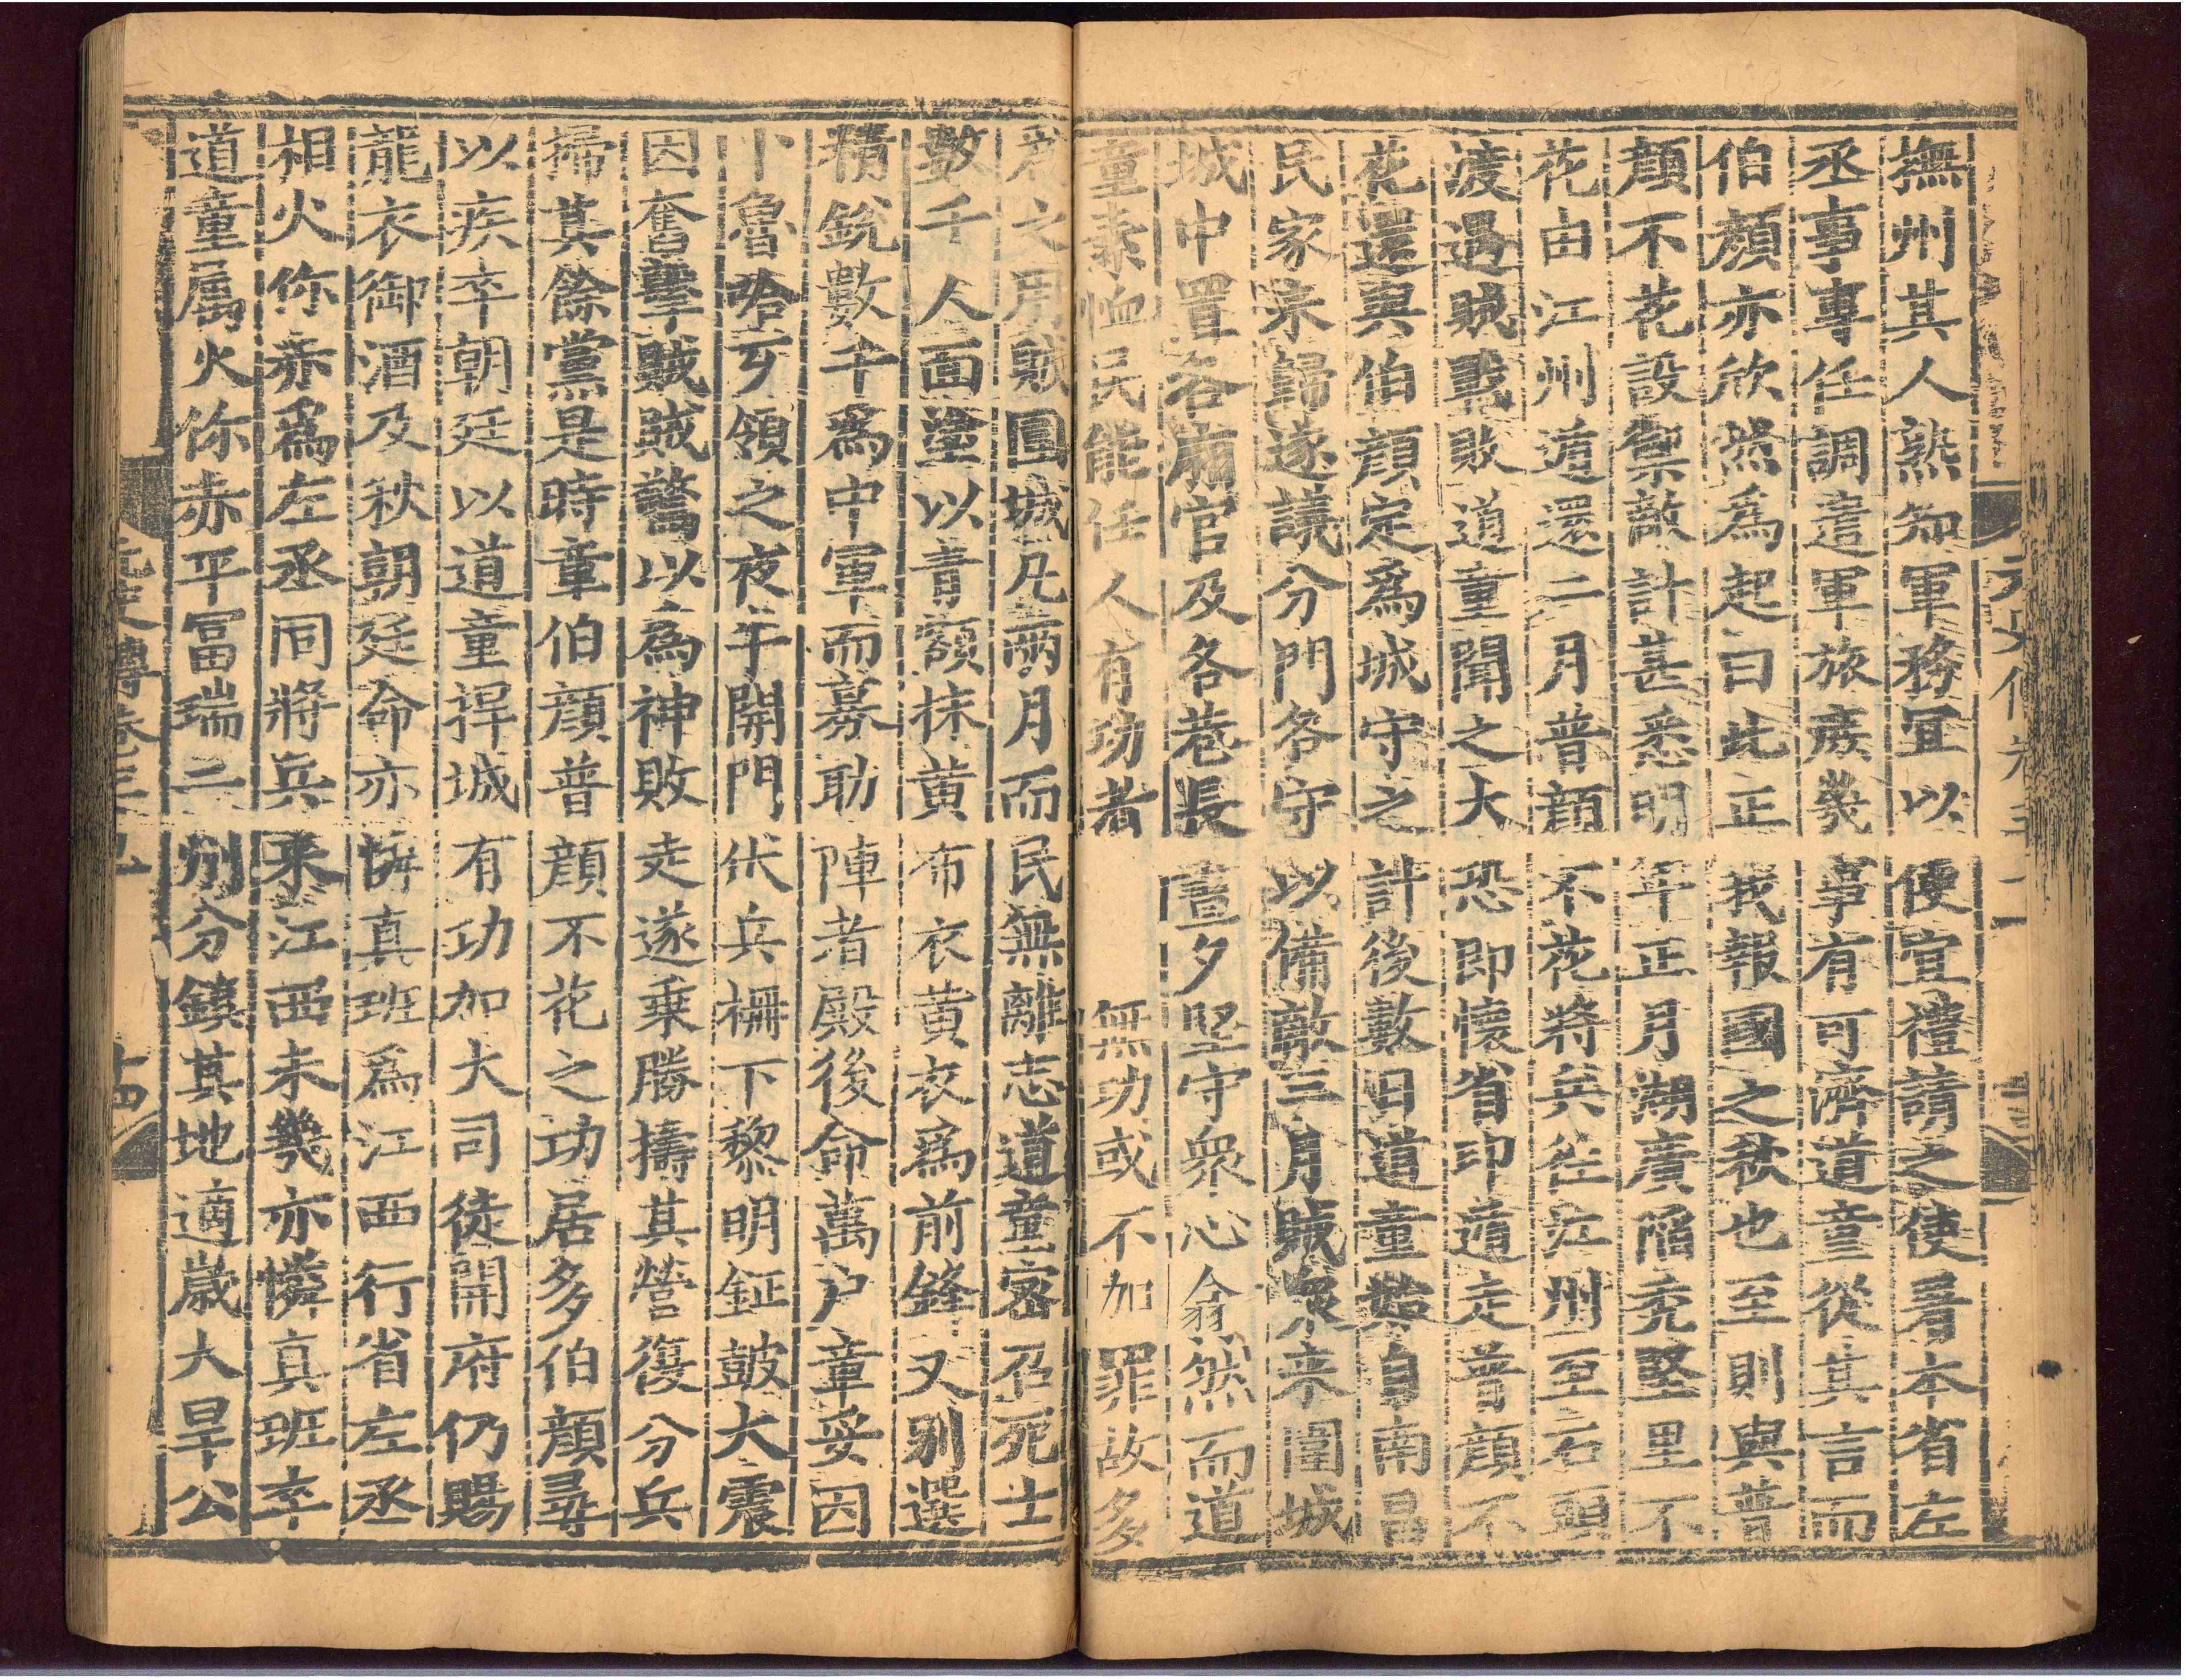 撫州其人熟知軍務宜以便宜禮請之使署本省左
丞事專任調遣軍旅庶幾事有可濟道童從其言而
伯顏亦欣然爲起曰此正我報國之秋也至則與普
顏不花設禦敵計甚悉明年正月湖廣陷禿堅里不
花由江州遁還二月普顏不花將兵徃江州至石頭
渡遇賊戰敗道童聞之大恐即懷省印遁走普顏不
花還與伯顏定爲城守之計後數日道童始自南昌
民家来歸遂議分門各守以備敵三月賊衆来圍城
城中置各廂官及各巷長晝夕堅守衆心翕然而道
童素恤民能任人有功者無功或不加罪故多
爲之用賊圍城凡兩月而民無離志道童密召死士
數千人面塗以青額抹黄布衣黄衣爲前鋒又别選
精銳數千爲中軍而募助陣者殿後命萬户章妥因
卜魯哈歹領之夜半開門伏兵柵下黎明鉦鼓大震
因奮擊賊賊驚以爲神敗走遂乗勝擣其營復分兵
掃其餘黨是時章伯顏普顏不花之功居多伯顏尋
以疾卒朝廷以道童捍城有功加大司徒開府仍賜
龍衣御酒及秋朝廷命亦憐真班爲江西行省左丞
相火你赤爲左丞同將兵来江西未幾亦憐真班卒
道童屬火你赤平冨瑞二州分鎮其地適歲大旱公
元史傳卷三十一
十四